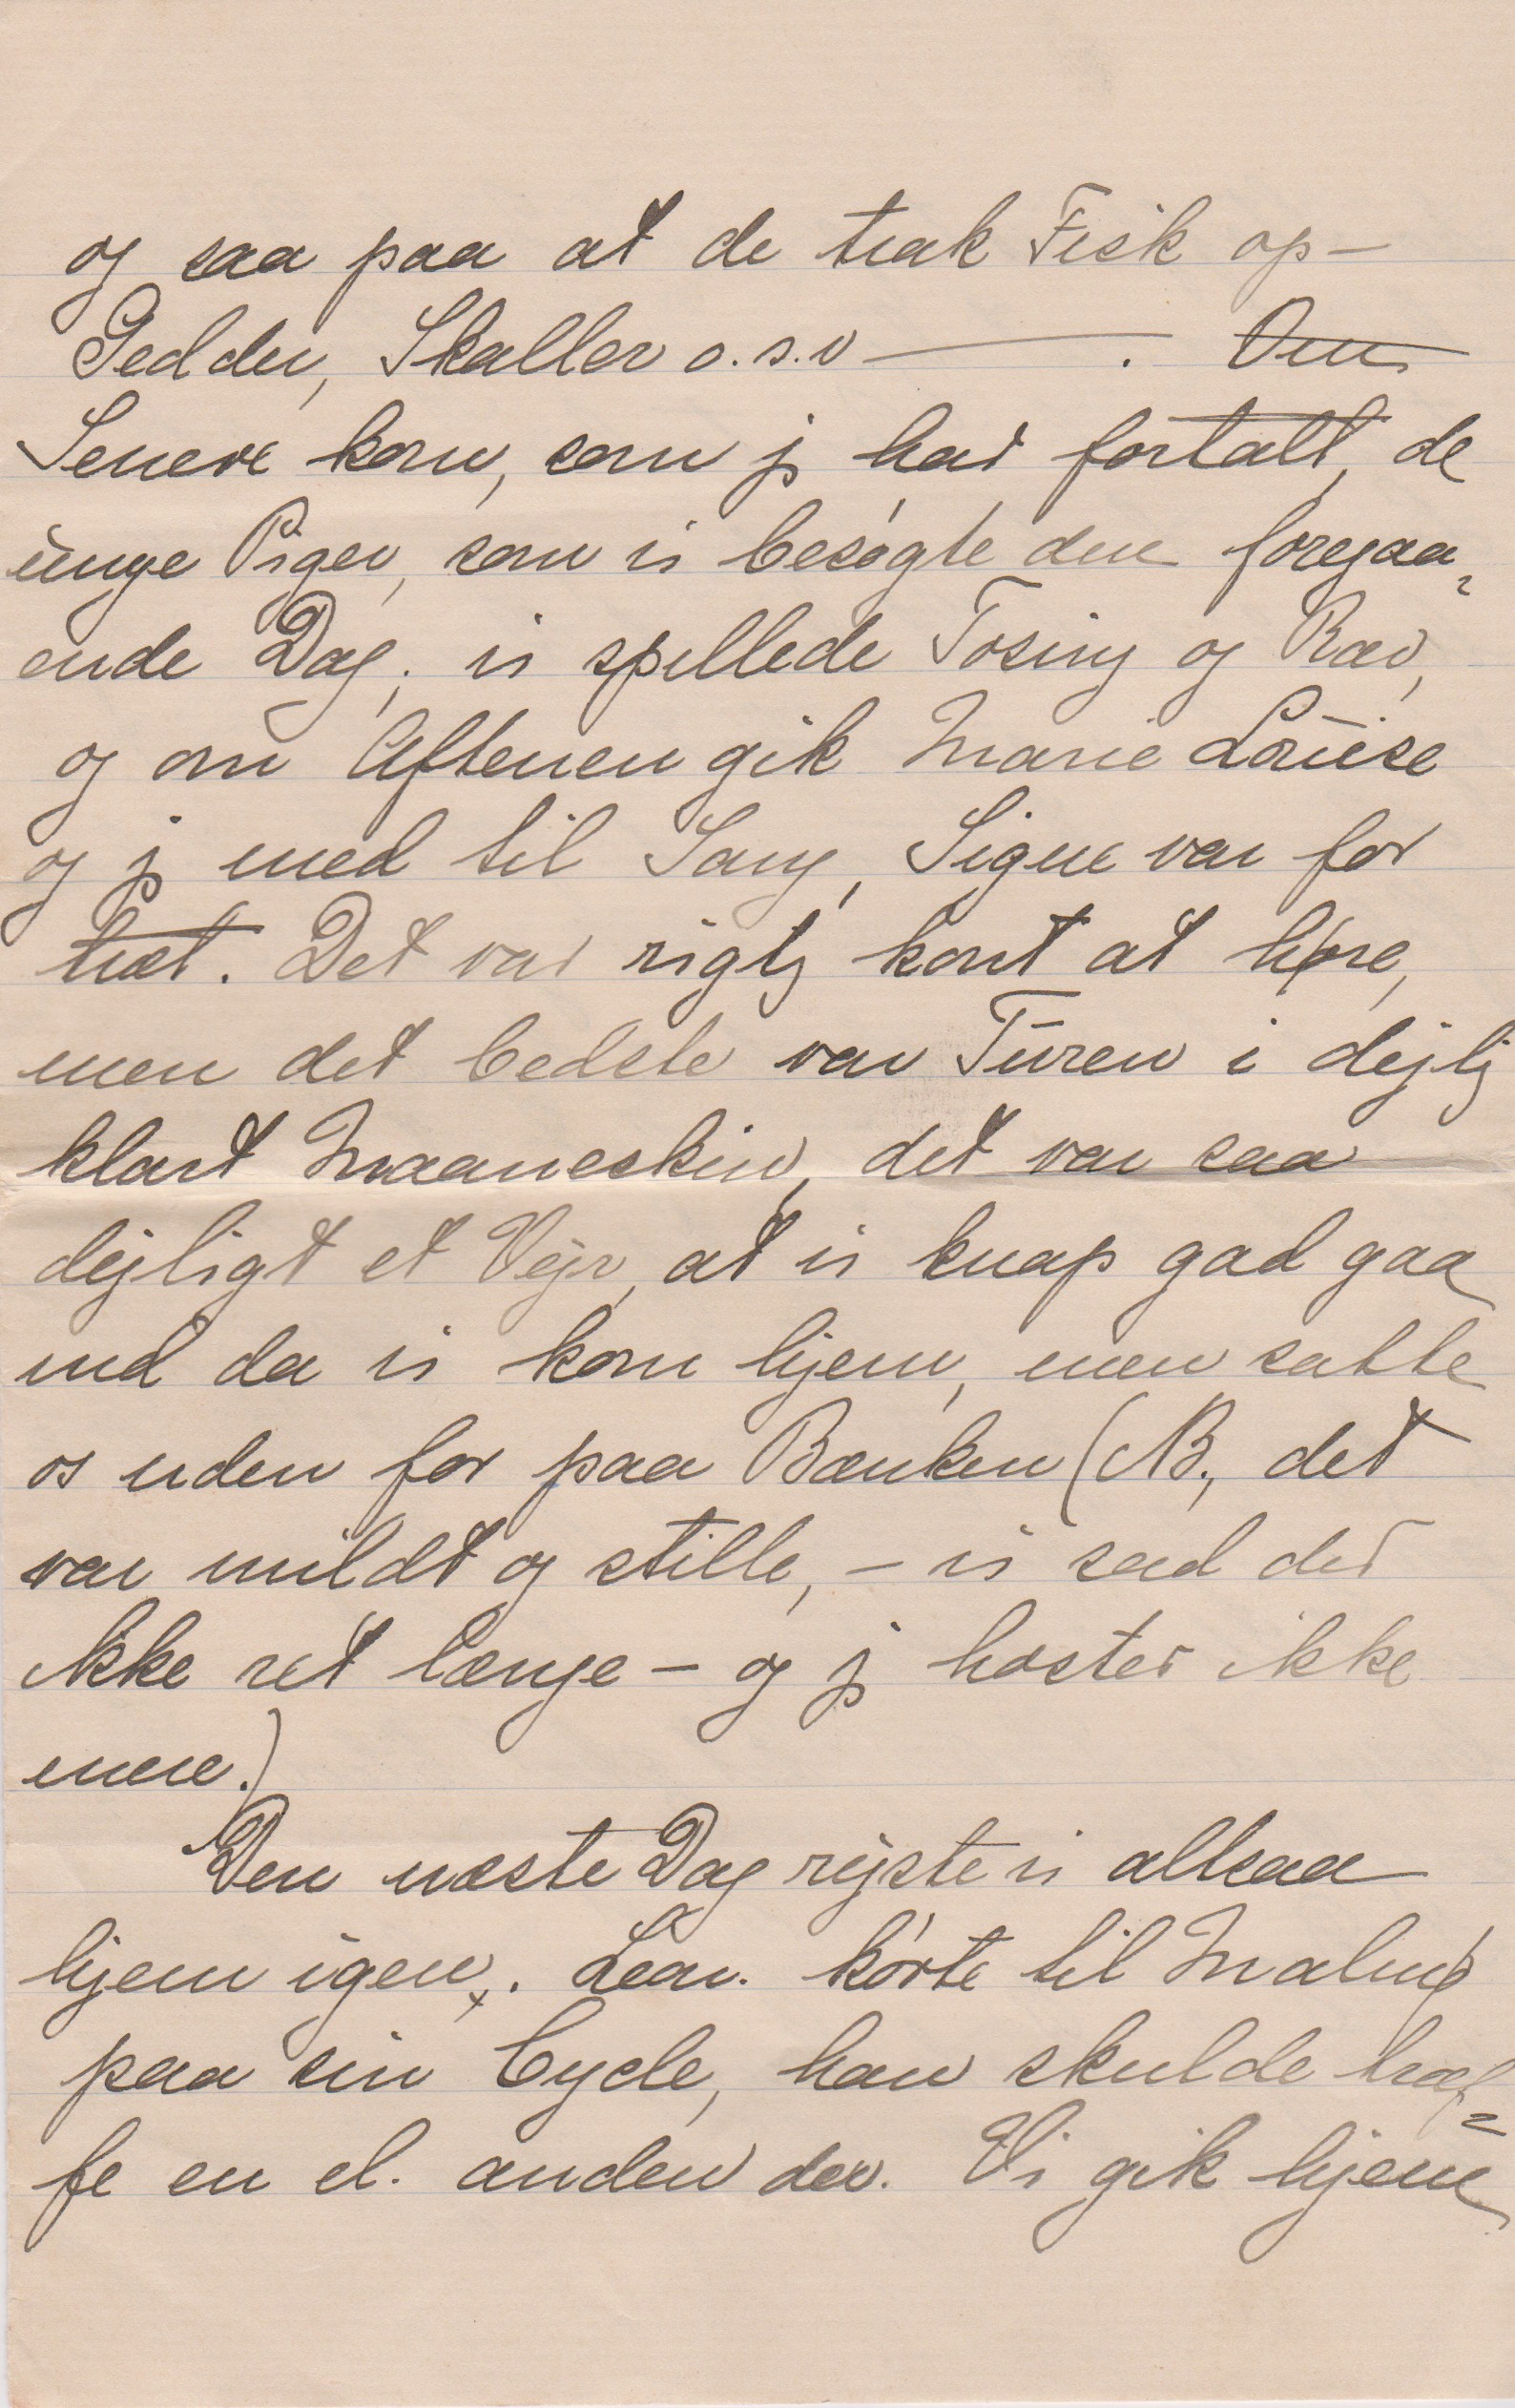 og saa paa at de trak Fisk op –
Gedder, Skaller o.s.v ——— . Om
Senere kom, som jg har fortalt, de
unge Piger, som vi besøgte den foregaa=
ende Dag; vi spillede Tosing og Ræv,
og om Aftenen gik Marie Louise
og jg med til Sang, Signe var for
træt. Det var rigtg kønt at høre,
men det bedste var Turen i dejlig
klart Maaneskin, det var saa
dejligt et Vejr, at vi knap gad gaa
ind da vi kom hjem, men satte
os uden for paa Bænken (NB., det
var mildt og stille, – vi sad der
ikke ret længe – og jg hoster ikke
mere.)
Den næste Dag rejste vi altsaa
hjem igen x. Lear. kørte til Malmø
paa sin Cycle, han skulde træf=
fe en el. anden der. Vi gik hjem